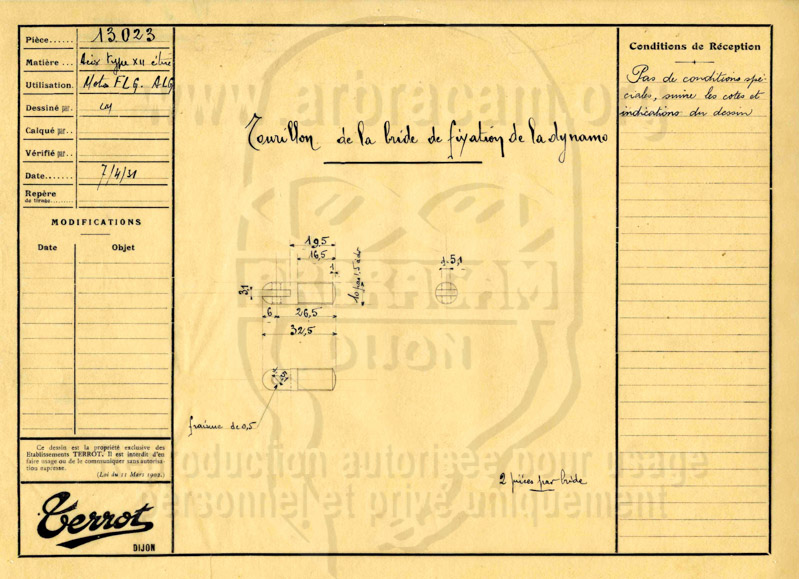 Pièce...... 13.023
Matière ... Acix type XII étiré
Utilisation. Moto FLG. ALG
Dessiné par.
Calqué par..
Vérifié par..
Date....... 7/4/31
Repère
de tirage.........
MODIFICATIONS
Date Objet
Ce dessin est la propriété exclusive des
Etablissements TERROT. Il est interdit d'en
faire usage ou de le communiquer sans autorisa-
tion expresse.
(Loi du 11 Mars 1902).
Terrot
DIJON
Tourillon de la bride de fixation de la dynamo
19,5
16,5
3,1
6 26,5
32,5
1.5,1
fraisure de 0,5
2 pièces par bride
Conditions de Réception
Pas de conditions spé-
ciales, suivre les cotes et
indications du dessin
www.arbracam.org
ARBRACAM
DIJON
Reproduction autorisée à un usage
personnel et privé uniquement